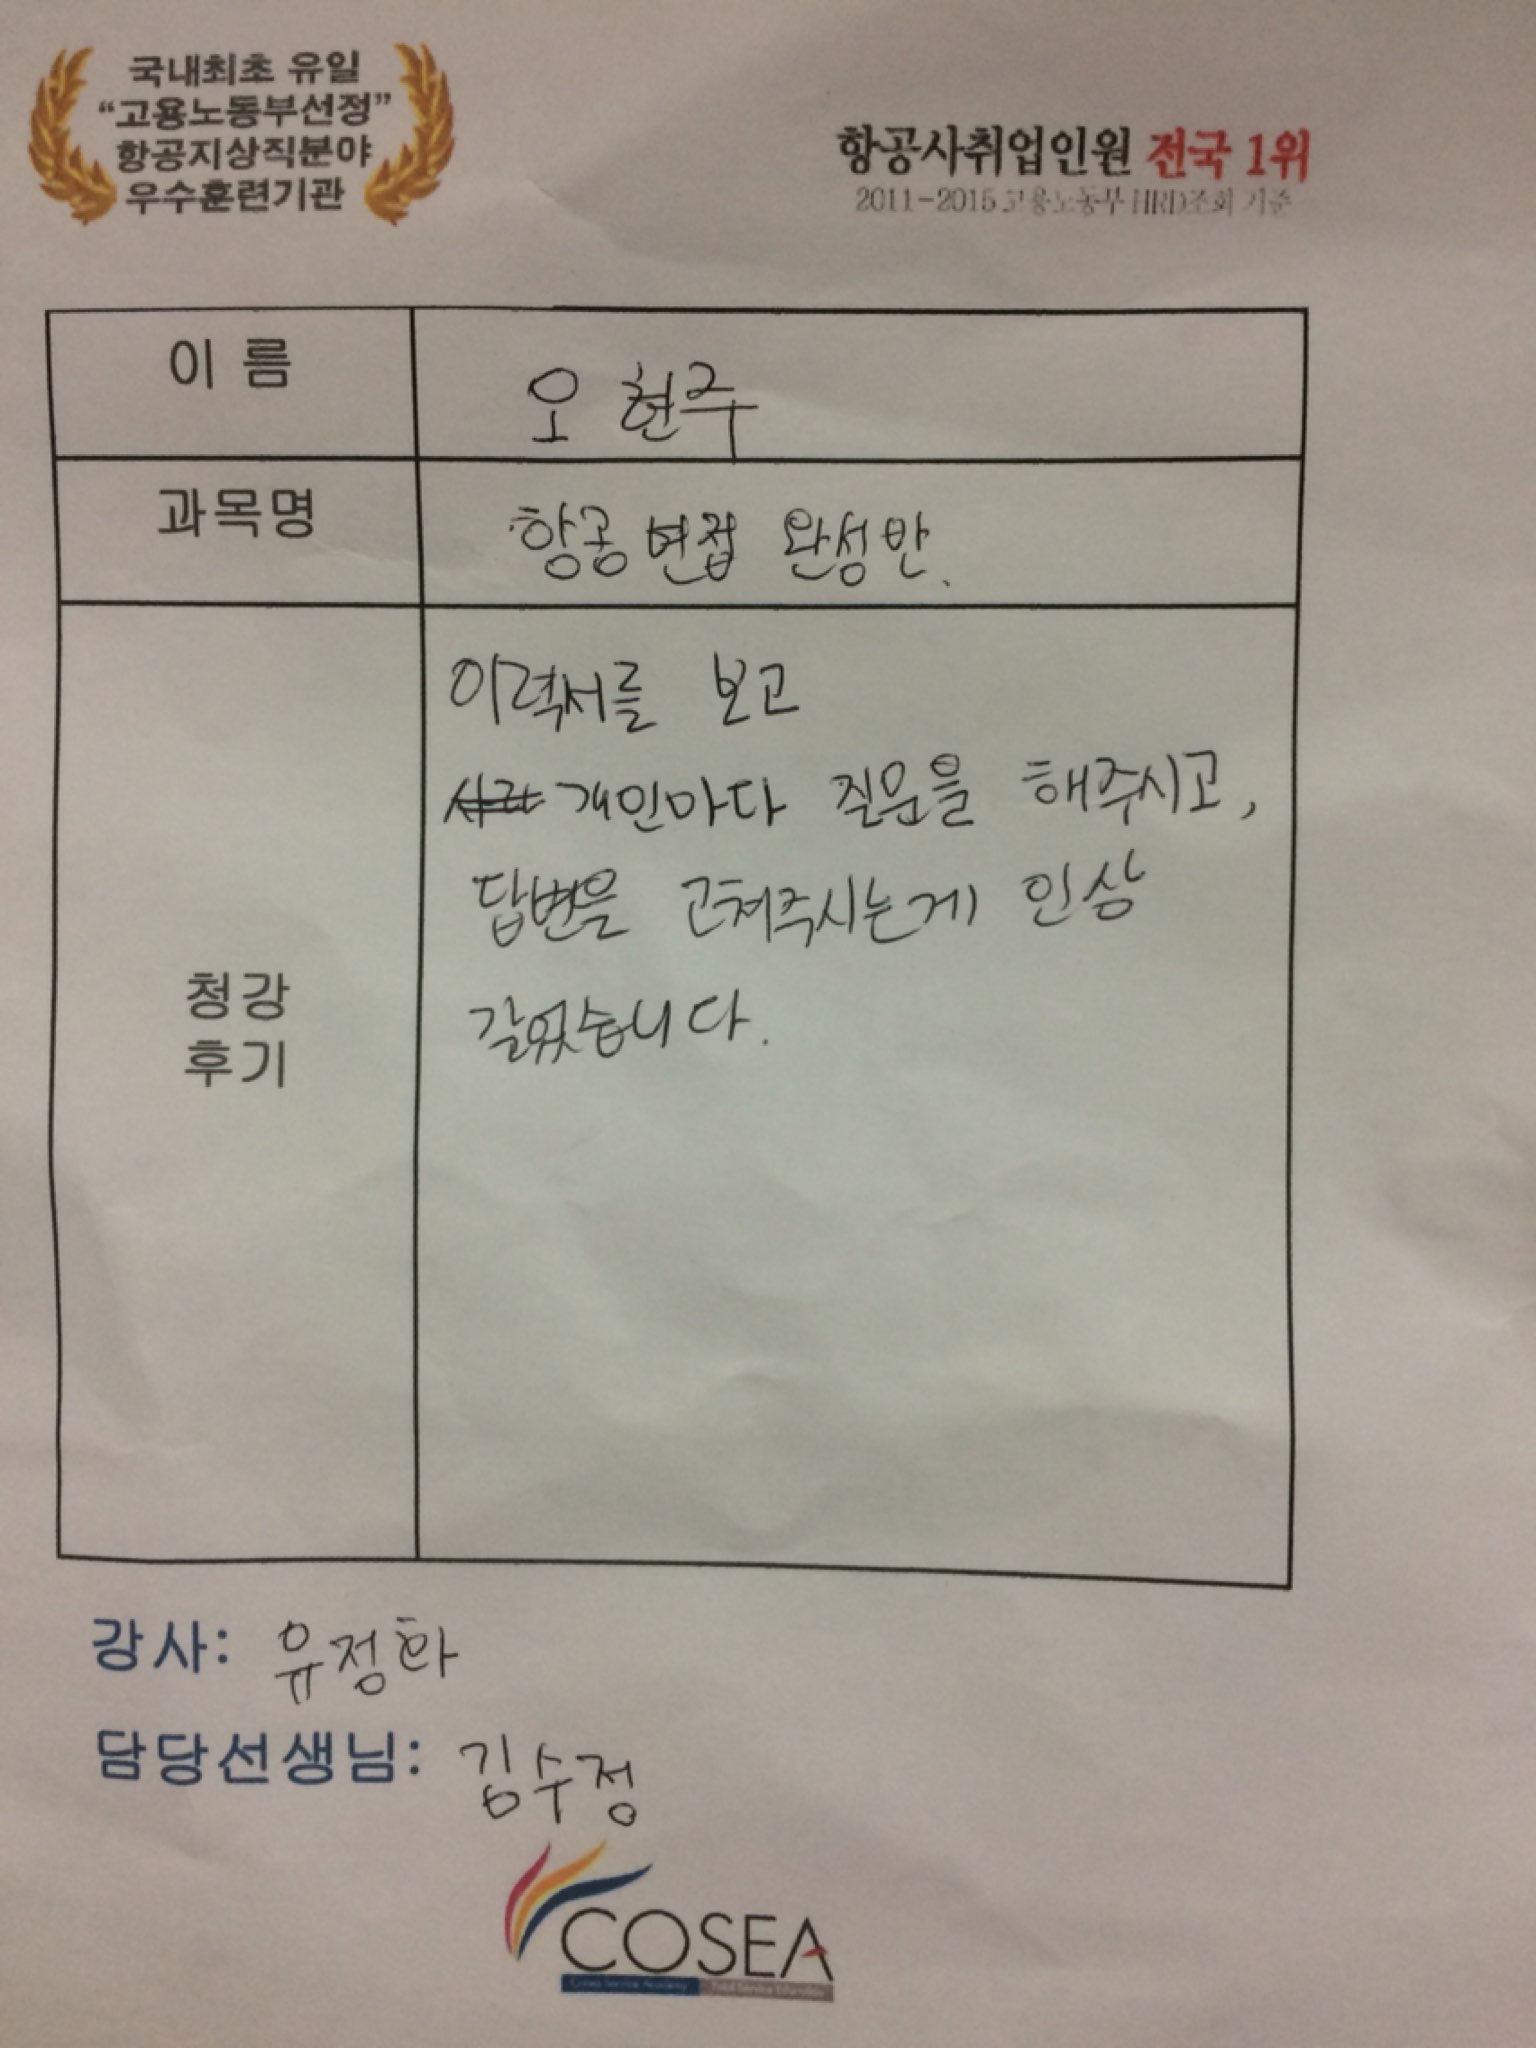 국내최초 유일
“고용노동부선정”
항공지상직분야
우수훈련기관
항공사취업인원 전국 1위
2011-2015 고용노동부 HRD조회 기준
이 름
오 현주
과목명
항공 면접 완성반.
청강
후기
이력서를 보고
개인마다 질문을 해주시고,
답변을 고쳐주시는게 인상
깊었습니다.
강사: 유정화
담당선생님: 김수정
COSEA
Cosea Service Academy